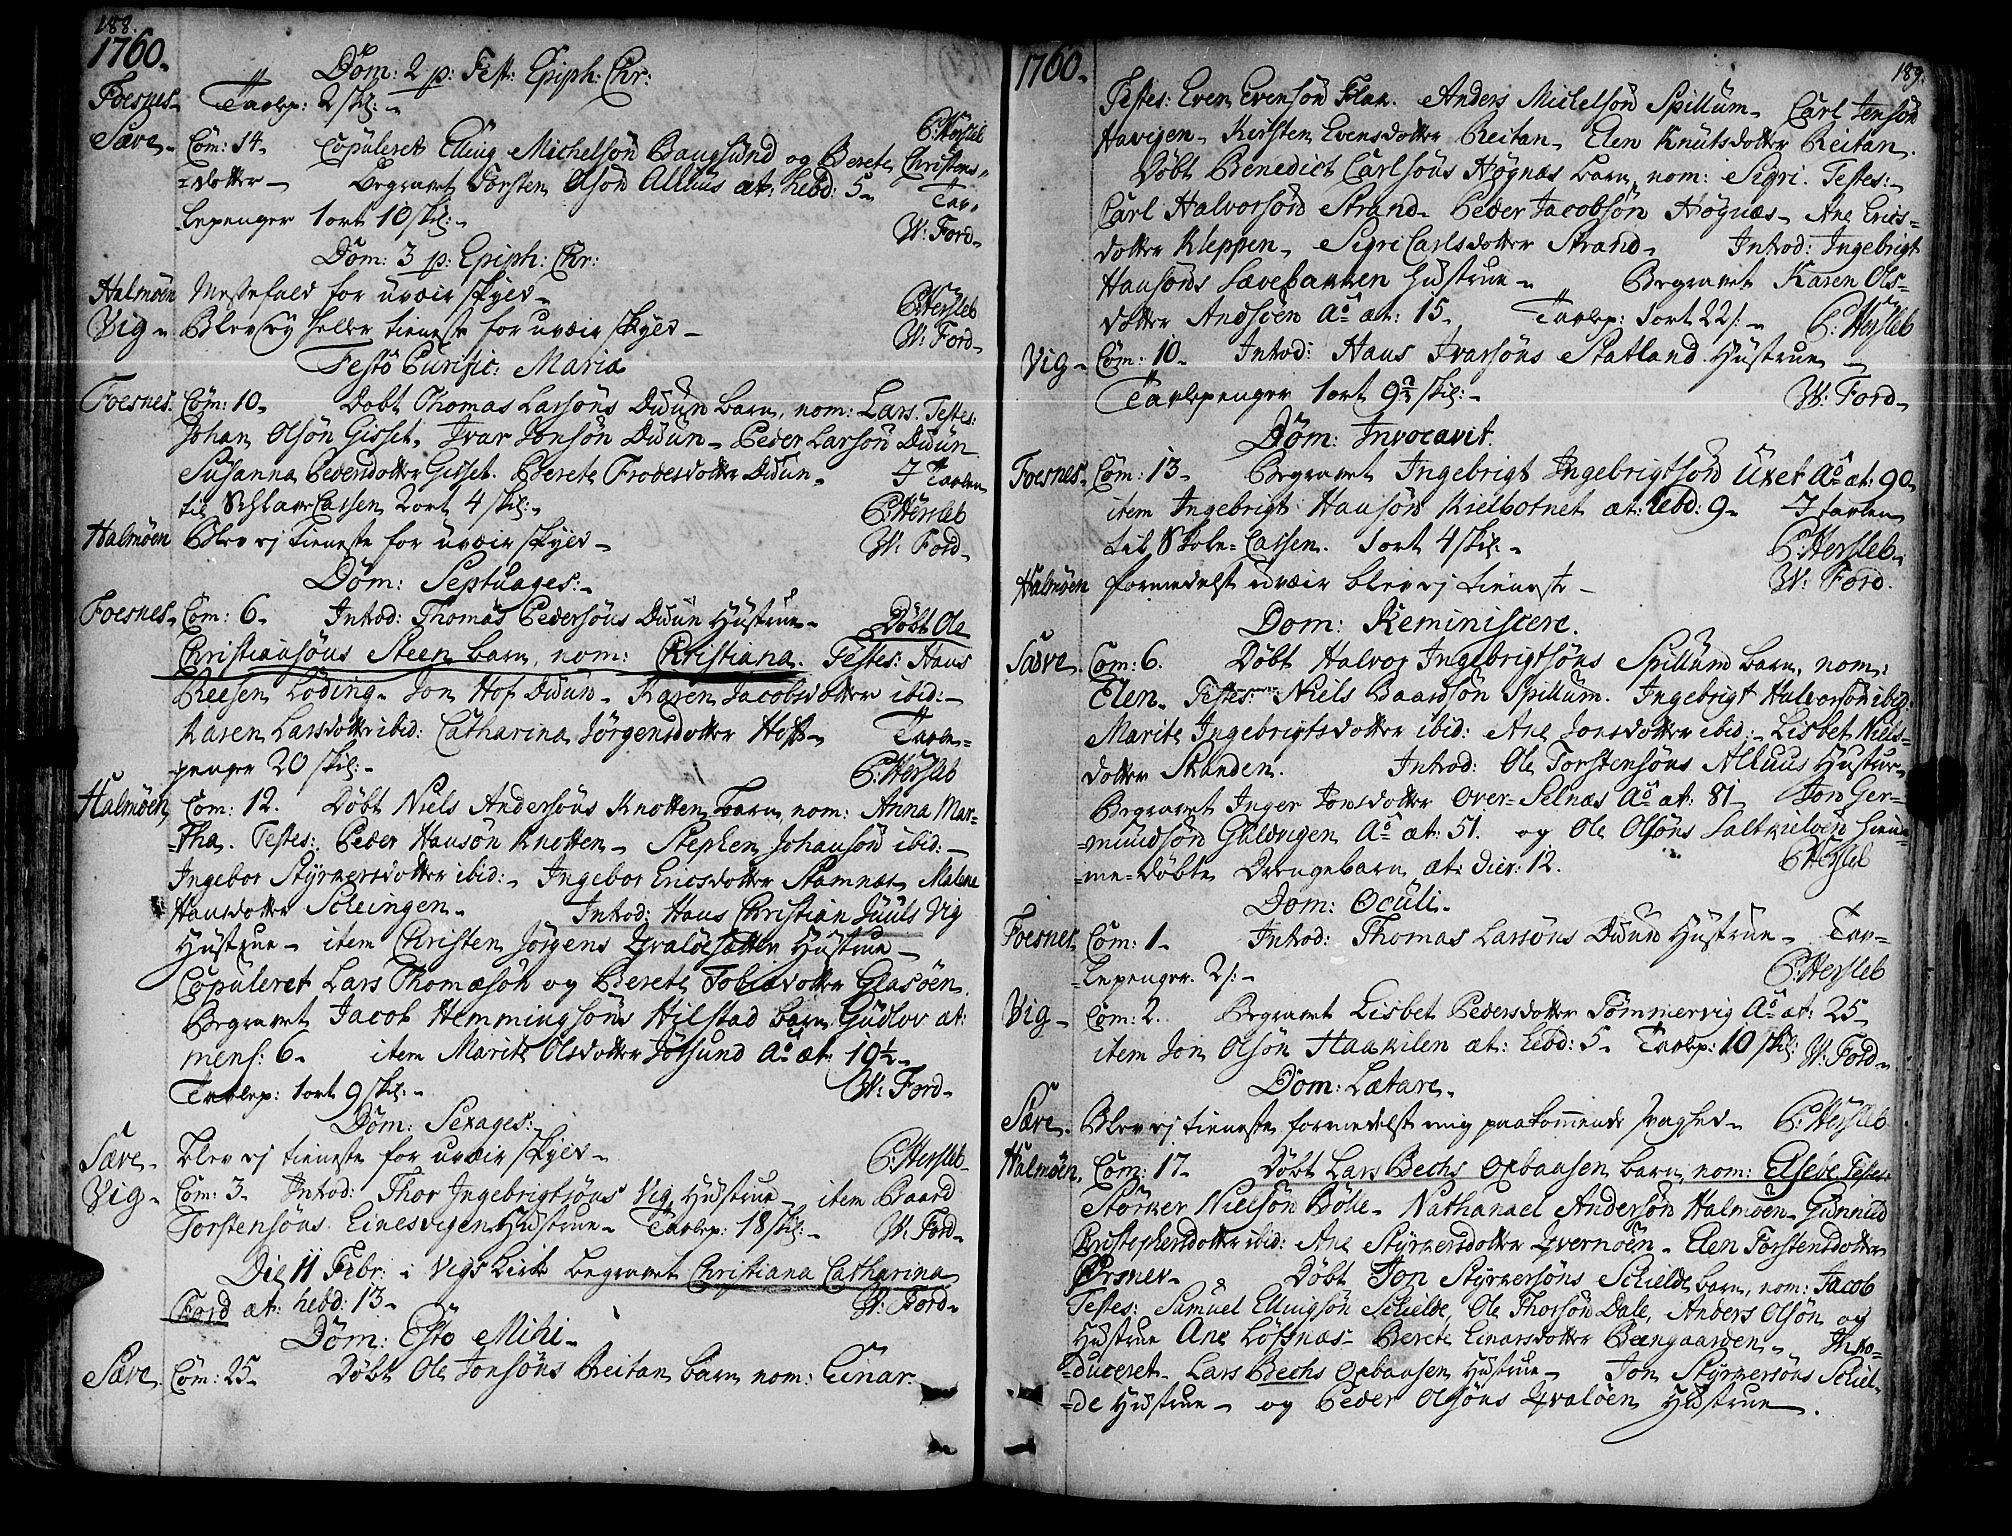 188.
1760.
Dom: 2 p: Fest: Epiph: Chr:
Foesnes. Tavlep: 2 skil:
P: Hersleb
Sæve. Com: 14. Copuleret Elling Michelsön Baugsund og Berete Christens-
=dotter. Begravet Torsten Olsön Alhuus æt: hebd: 5. Tav-
lepenger 1 ort 10 skil:
W: Ford
Dom: 3 p: Epiph: Chr:
Halmöen Messefald for uveir skyld. P: Hersleb
Vig. Blev ej heller tieneste for uveir skyld. W: Ford.
Festo Purific: Mariæ
Foesnes: Com: 10. Döbt Thomas Larsöns Duun barn, nom: Lars. Testes:
Johan Olsön Gisset, Ivar Jonsön Duun. Peder Larsön Duun
Susanna Pedersdotter Gisset. Berete Frodesdotter Duun. I Tavlen
til Schlave Cassen 2 ort 4 skil:
P: Hersleb
Halmöen Blev ej tieneste for uveir skyld. W: Ford.
Dom: Septuages:
Foesnes. Com: 6. Introd: Thomas Pedersöns Duun Hustrue. Döbt Ole
Christiansöns Steen barn, nom: Christiana. Testes: Hans
Reesen Löding. Jon Hof Duun. Karen Jacobsdotter ibid:
Karen Larsdotter ibid: Catharina Jörgensdotter Hoff. Tavle-
penger 20 skil:
P: Hersleb
Halmöen Com: 12. Döbt Niels Andersöns Knotten barn, nom: Anna Mar-
=tha. Testes: Peder Hansön Knotten. Stephen Johansön ibid:
Ingebor Styrkersdotter ibid: Ingebor Ericsdotter Stamnes, Malene
Hansdotter Scheingen. Introd: Hans Christian Juuls Vig
Hustrue. item Christen Jörgens Qvaløesætter Hustrue
Copuleret Lars Thomæsön og Berete Tobiædotter Glasöen.
Begravet Jacob Hemmingsöns Hilstad barn Gudlov æt:
mens: 6. item Marite Olsdotter Jötsund Aö æt: 10½
Tavlep: 1 ort 9 skil: W: Ford.
Dom: Sexages:
Sæve. Blev ej tieneste for uveir skyld. P: Hersleb.
Vig. Com: 3. Introd: Thor Ingebrigtsöns Vig Hustrue. item Baard
Torstensöns Einesvigen Hustrue. Tavlep: 18 skil: W: Ford.
Die 11 Febr: i Vigs kirke begravet Christiana Catharina
Ford æt: hebd: 13. W: Ford.
Dom: Esto Mihi.
Sæve. Com: 25. Döbt Ole Jonsöns Reitan barn nom: Einar.
189.
1760.
Testes: Even Evensön Flaa. Anders Michelsön Spillum. Carl Jensön
Havigen. Kirsten Evensdotter Reitan. Elen Knutsdotter Reitan.
Döbt Benedict Carlsöns Högnæs barn, nom: Sigri. Testes:
Carl Halvorsön Strand. Peder Jacobsön Högnæs. Ane Erics-
dotter Kleppen. Sigri Carlsdotter Strand. Introd: Ingebrigt
Hansöns Sævebakken Hustrue. Begravet Karen Ols-
dotter Andsöen Aö æt: 15. Tavlep: 1 ort 22 s: P: Hersleb
Vig. Com: 10. Introd: Hans Ivarsöns Statland Hustrue
Tavlepenger 1 ort 9½ skil: W: Ford.
Dom: Invocavit.
Foesnes. Com: 13. Begravet Ingebrigt Ingebrigtsön Uxet Aö æt: 90.
item Ingebrigt Hansön Kielbotnet æt: hebd: 9. I tavlen
til Skole-Cassen. 1 ort 4 skil: P: Hersleb.
Halmöen formedelst uveir blev ej tieneste. W: Ford.
Dom: Reminiscere.
Sæve. Com: 6. Döbt Halvor Ingebrigtsöns Spillum barn, nom:
Elen. Testes: Niels Baardsön Spillum. Ingebrigt Halvorsön ibid.
Marite Ingebrigtsdotter ibid: Ane Jonsdotter ibid: Lisbet Niels-
dotter Stranden. Introd: Ole Torstensöns Alhuus Hustrue.
Begravet Inger Jonsdotter Over-Selnæs Aö æt: 81. Jon Ger-
=mundsön Guldvigen Aö æt: 51. og Ole Olsöns Saltkielöen hiem-
=me-döbte Drengebarn æt: dier: 12. P: Hersleb
Dom: Oculi.
Foesnes. Com: 1. Introd: Thomas Larsöns Duun Hustrue. Tav-
=lepenger. 2 s: P: Hersleb
Vig. Com: 2. Begravet Lisbet Pedersdotter Tömmervig Aö æt: 25.
item Jon Olsön Haakilen æt: hebd: 5. Tavlep: 10 skil: W: Ford.
Dom: Lætare.
Sæve. Blev ej tieneste formedelst mig paakommende svaghed. P: Hersleb
Halmöen. Com: 17. Döbt Lars Bechs Opbaasen barn, nom: Elsebe. Testes:
Störker Nielsön Böle. Nathanael Andersön Halmöen. Gunnild
Christophersdotter ibid: Ane Styrkersdotter Qvernöen. Elen Torstensdotter
Örsnes. Döbt Jon Styrkersöns Schielde barn, nom: Jacob
Testes: Samuel Ellingsön Schielde, Ole Thorsön Dale, Anders Olsön og
Hustrue Ane Löffnæs. Berete Einarsdotter Beengaarden. Intro-
=duceret. Lars Bechs Opbaasen Hustrue. Jon Styrkersöns Schiel-
=de Hustrue. og Peder Olsöns Qvalöen Hustrue.